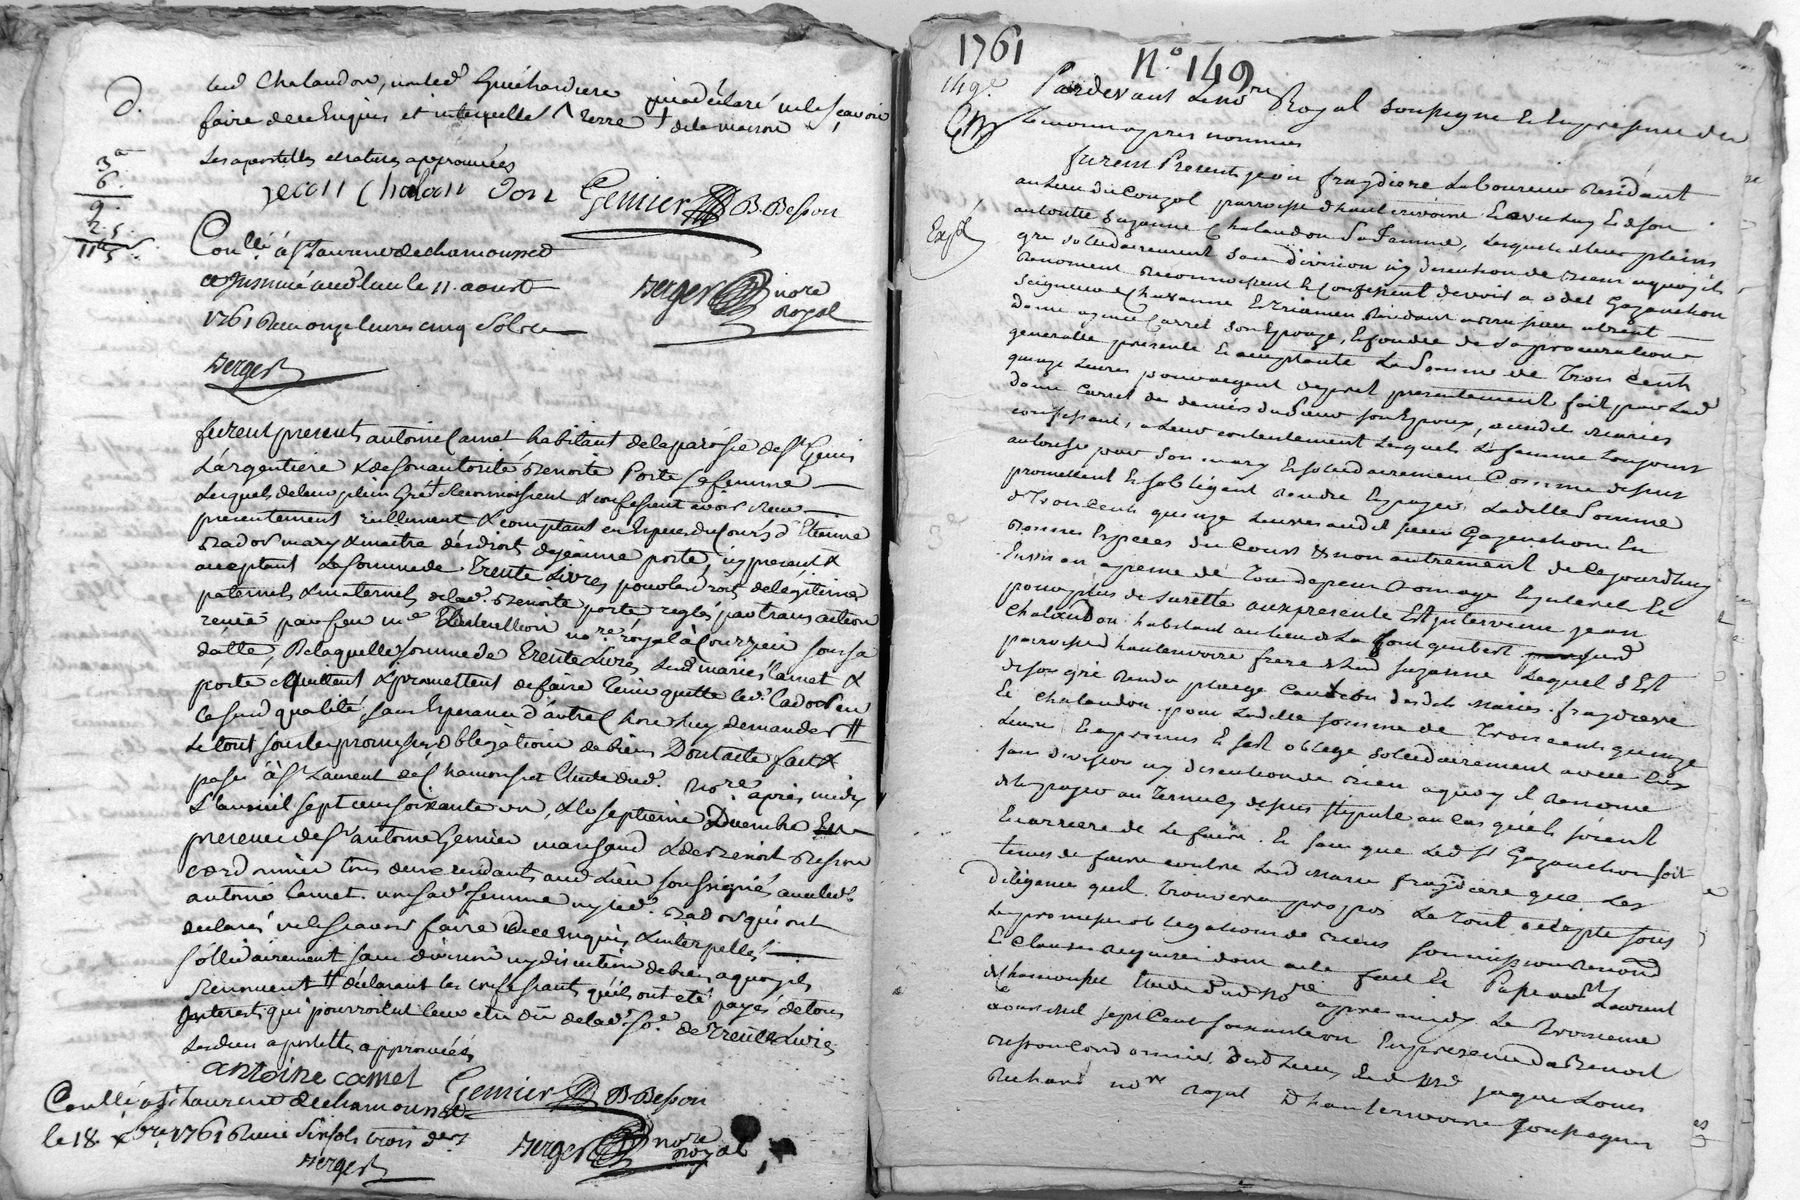 led Chalandon, non led Guichardiere qui a déclaré ne le sçavoir
faire de ce enquis et interpellés terre de la maison
Les apostilles et ratures approuvées
jean Chalandon Gemier B. Besson
3
6
9
2. 5.
11 5
Conllé à St Laurent de chamousset
le 11. aoust
1761 Reçu onze livres cinq sols
Berger nore
royal
Berger
furent presents antoine Camet habitant de la paroisse de St Genis
L'argentiere & de son autorité Benoite Porte sa femme
Lesquels de leur plein Gré Reconnoissent & confessent avoir reçu
presentement réellement & comptant en Espèces du Cours d'Etienne
Bador mary & maitre des droits de jeanne porte, icy present &
acceptant La somme de Trente Livres pour les droits de légitime
paternels & maternels de lad. Benoite porte reglés par transaction
reçüe par feu me nore royal à Courzieu sous sa
datte, De laquelle somme de Trente Livres lesd mariés Camet &
porte quittent & promettent de faire tenir quitte led. Bador en
ce sa qualité, sans Esperance d'autre chose luy demander
Le tout sous les promesses obligation de biens Dont acte fait &
passé à St Laurent de Chamousset Etude dud. nore après midy
L'an mil sept cent soixante un, & le septieme Decembre En
presence de Sr antoine Gemier marchand & de Benoit Besson
cordonnier tous deux residants aud Lieu soussignés avec led.
antoine Camet. non sad. femme ny led. Bador qui ont
declarés ne le scavoir faire de ce enquis & interpellés
sollidairement sans division ny discution de biens a quoy ils
renoncent déclarant les confessants qu'ils ont eté payés de tous
Interests qui pourroient leur etre dû de lad. so.e de Trente Livres
Les deux apostilles approuvées
antoine camet Gemier B. Besson
Conllé a St Laurent de chamousset
le 18. xbre 1761 Reçu six sols trois ders
Berger
Berger nore
royal
1761 No 149
149e Pardevant Le nore Royal soussigné Et En presence des
temoins cy apres nommés
furent Presents jean fragdiere Laboureur Residant
au Lieu du Couzol parroisse d'hauterivoire Et avec luy Et de son
Expd autorité Suzanne Chalandon Sa Femme, Lesquels de leur pleins
gré solidairement Sans division ny discution de biens a quoy ils
Renoncent Reconnoissent Et Confessent devoir a odet Gazanchon
Seigneur de Chavanne
dame Carret son Epouze, Et fondée de sa procuration
generalle presente Et acceptante La Somme de Trois Cents
quinze Livres pour argent de pret presentement fait par lad
dame Carret des deniers du Sieur son Epoux, auxdits mariés
confessant, a Leur contentement Lesquels La femme toujours
autorisé par Son mary Et solidairement Comme dessus
promettent Et s'obligent rendre Et payer Laditte Somme
de Trois Cents quinze Livres audit sieur Gazanchon En
Bonnes Espèces du Cours & non autrement de Cejourdhuy
En six an a peine de Tous depens Domage Et interets Et
pour plus de Surette aux presente Est intervenu jean
Chalandon habitant au lieu de La font guibert susd
parroisse d'hauterivoire frere de lad Suzanne Lequel S'Est
de son gré Rendu pleige Caution desdits Mariés. fragdiere
Et chalandon pour Laditte somme de Trois cents quinze
Livres Et s'est obligé Solidairement avec Eux
sans division ny discution de biens a quoy il Renonce
de la payer au Terme cy dessus stipulé au Cas qu'ils soient
En arriere de Le faire. Et sans que Led Sr Gazanchon soit
tenus de faire contre Lesd Mariés fragdiere que Les
diligence qu'il Trouvera a propos Le Tout accepté sous
Les promesses obligations de biens soumissions Renond
Et Clauses requises dont acte fait Et Passé a St Laurent
de chamousset Etude dud Nore apres midy Le Troisieme
aoust mil sept Cent soixante un En presence de Benoit
Besson Cordonnier dud Lieu Et de Me jaque Louis
Richard nore Royal D'hauterivoire soussignés